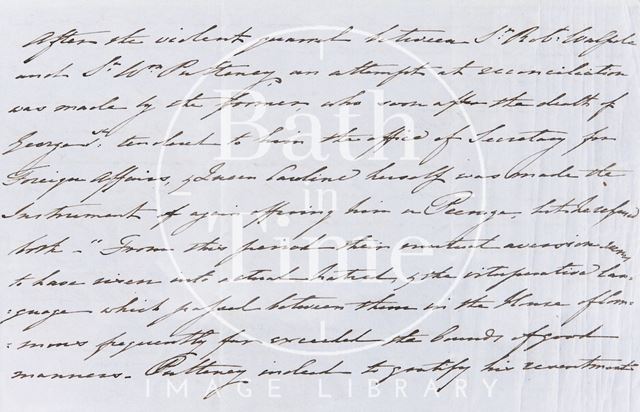 After the violent quarrel between Sr. Robt. Walpole
and Sr. Wm Pulteney, an attempt at reconciliation
was made by the former who soon after the death of
George 1st. tendered to him the office of Secretary for
Foreign Affairs, & Queen Caroline herself was made the
Instrument of again offering him a Peerage, but he refused
both - "From this period their mutual aversion seems
to have risen into actual hatred, & the vituperative lan
:guage which passed between them in the House of Com
:mons frequently far exceeded the bounds of good
manners. Pulteney indeed to gratify his resentment
Bath
in
Time
IMAGE LIBRARY